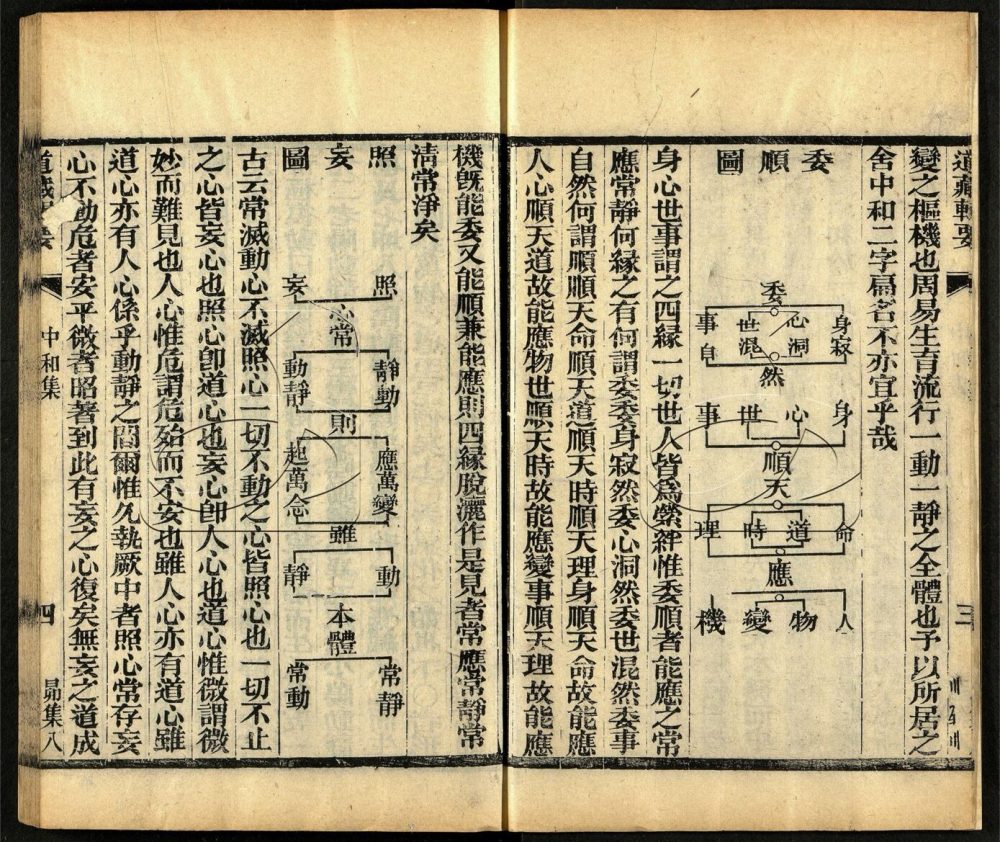 道藏輯要
三
變之樞機也周易生育流行一動一靜之全體也予以所居之
舍中和二字扁名不亦宜乎哉
委順圖
委
身寂
心洞
世混
事自
然
身
心
世
事
順
天
命
道
時
理
應
人
物
變
機
身心世事謂之四緣一切世人皆爲縈絆惟委順者能應之常
應常靜何緣之有何謂委委身寂然委心洞然委世混然委事
自然何謂順順天命順天道順天時順天理身順天命故能應
人心順天道故能應物世順天時故能應變事順天理故能應
機旣能委又能順兼能應則四緣脫灑作是見者常應常靜常
淸常淨矣
照妄圖
照
妄
心常
靜動
動靜
則
應萬變
起萬念
雖
動
靜
本體
常靜
常動
古云常滅動心不滅照心一切不動之心皆照心也一切不止
之心皆妄心也照心卽道心也妄心卽人心也道心惟微謂微
妙而難見也人心惟危謂危殆而不安也雖人心亦有道心雖
道心亦有人心係乎動靜之間爾惟允執厥中者照心常存妄
心不動危者安平微者昭著到此有妄之心復矣無妄之道成
中和集
四
昴集八